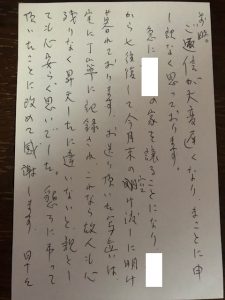 前略
ご返信が大変遅くなり、まことに申
し訳なく思っております。
急に の家を譲ることになり
から七往復して今月末の明け渡しに明け
暮れております。お送り頂いた写真は
実に丁寧に記録され、これなら故人も心
残りなく昇天したに違いないと親とし
ても心安らぐ思いでした。懇ろに弔って
頂いたことに改めて感謝します 早々